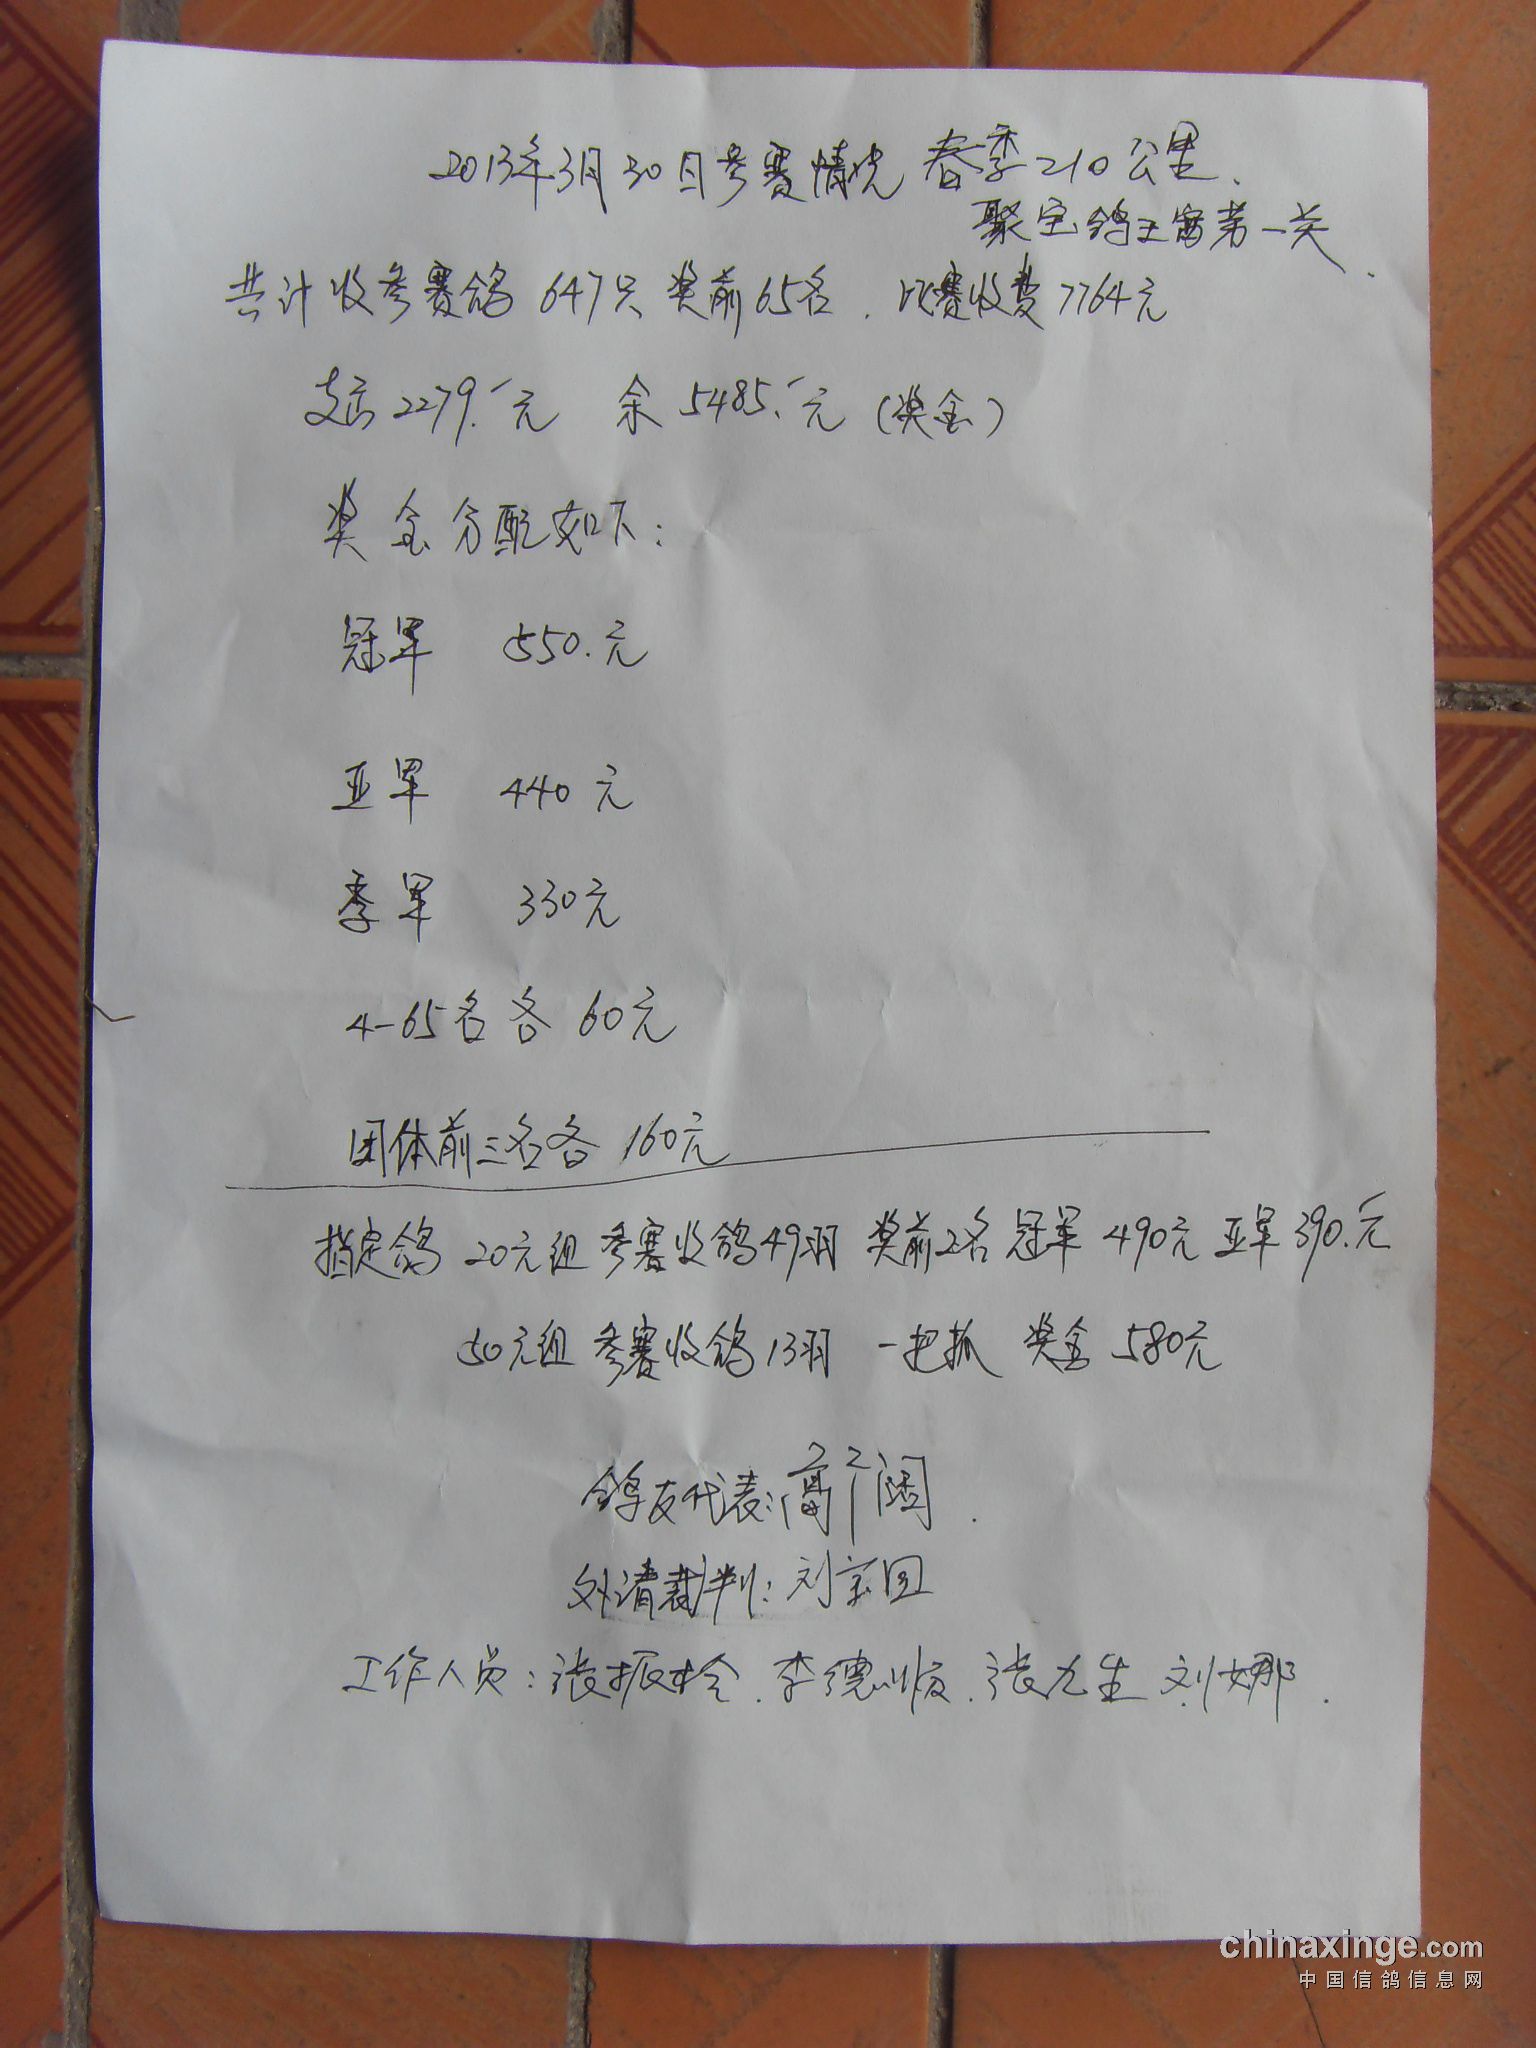 2013年3月30日参赛情况 春季210公里.
聚宝鸽王赛第一关.
共计收参赛鸽647只 奖前65名. 比赛收费7764元
支出2279.元 余5485.元(奖金)
奖金分配如下:
冠军 550.元
亚军 440元
季军 330元
4-65名各60元
团体前三名各160元
指定鸽 20元组参赛收鸽49羽 奖前2名 冠军490元 亚军390.元
50元组 参赛收鸽13羽 一把抓 奖金580元
鸽友代表:
外请裁判: 刘宗国
工作人员: 张振栓. 李德顺. 张九生 刘娜.
chinaxinge.com
中国信鸽信息网